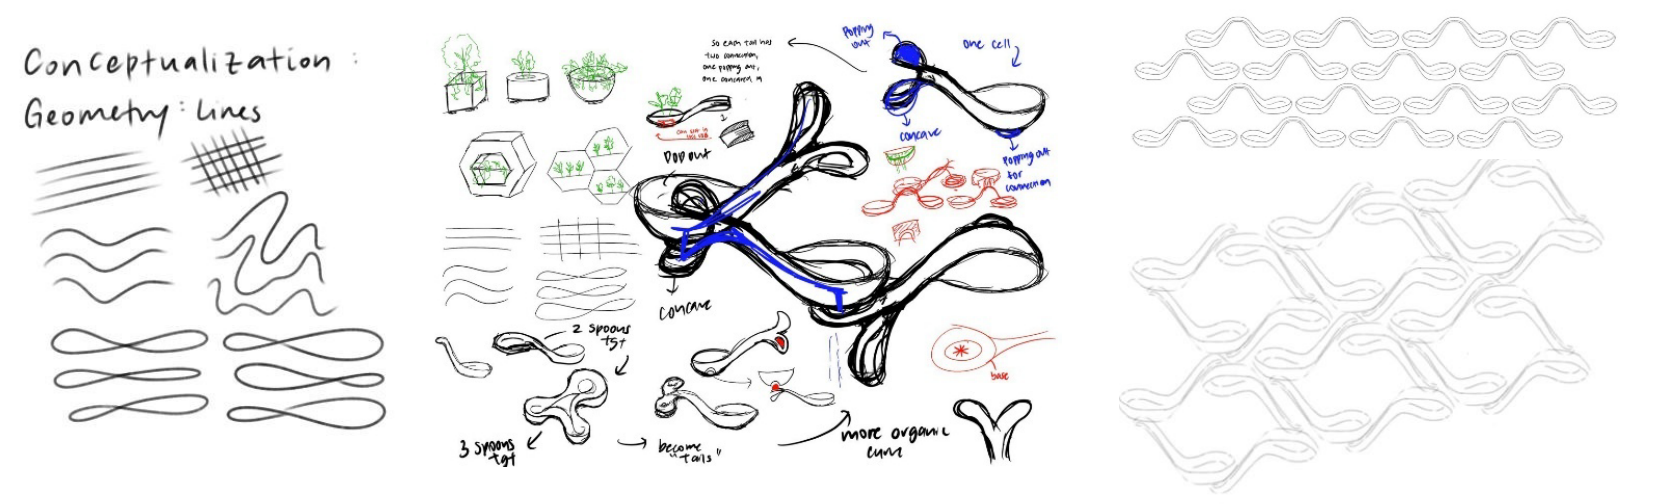 Conceptualization :
Geometry : Lines
So each tail has
two connection,
one popping out,
one concaved in
Popping
out
one cell
concave
popping out
for
connection
pop out
concave
2 spoons
tgt
3 spoons
tgt
become
"tails"
more organic
curve
base